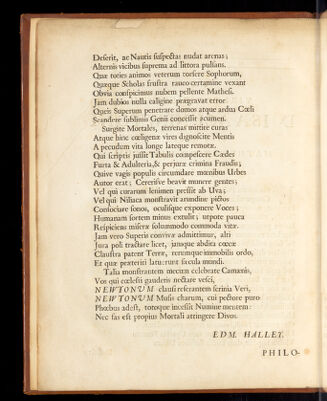 Deserit, ac Nautis suspectas nudat arenas;
Alternis vicibus suprema ad littora pulsans.
Quæ toties animos veterum torsere Sophorum,
Quæque Scholas frustra rauco certamine vexant
Obvia conspicimus nubem pellente Mathesi.
Jam dubios nulla caligine prægravat error
Queis Superum penetrare domos atque ardua Cœli
Scandere sublimis Genii concessit acumen.
Surgite Mortales, terrenas mittite curas
Atque hinc cœligenæ vires dignoscite Mentis
A pecudum vita longe lateque remotæ.
Qui scriptis jussit Tabulis compescere Cædes
Furta & Adulteria, & perjuræ crimina Fraudis;
Quive vagis populis circumdare mœnibus Urbes
Autor erat; Cererisve beavit munere gentes;
Vel qui curarum lenimen pressit ab Uva;
Vel qui Niliaca monstravit arundine pictos
Consociare sonos, oculisque exponere Voces;
Humanam sortem minus extulit; utpote pauca
Respiciens miseræ solummodo commoda vitæ.
Jam vero Superis convivæ admittimur, alti
Jura poli tractare licet, jamque abdita cœcæ
Claustra patent Terræ, rerumque immobilis ordo,
Et quæ præteriti latuerunt sæcula mundi.
Talia monstrantem mecum celebrate Camænis,
Vos qui cœlesti gaudetis nectare vesci,
NEWTONVM clausi reserantem scrinia Veri,
NEWTONVM Musis charum, cui pectore puro
Phœbus adest, totoque incessit Numine mentem:
Nec fas est propius Mortali attingere Divos.
EDM. HALLEY.
PHILO-